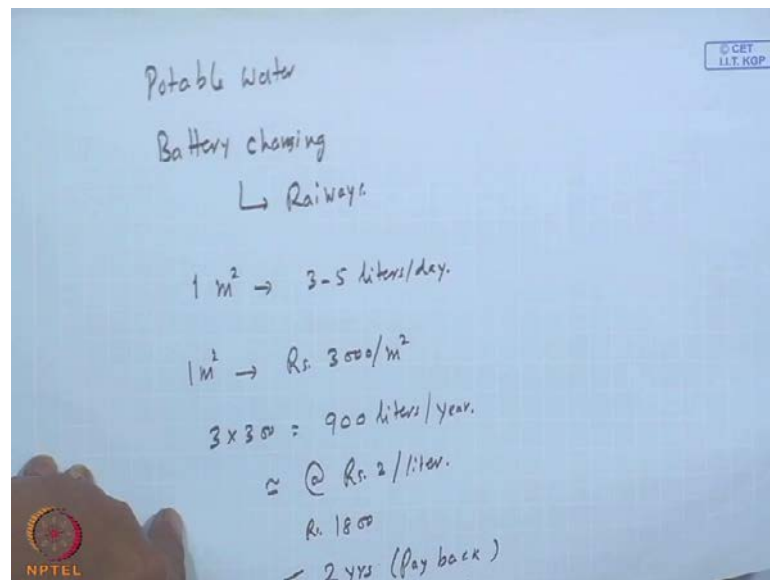 © CET
I.I.T. KGP
Potable water
Battery charging
↳ Raiways.
1 m² → 3-5 liters/day.
1 m² → Rs. 3000/m²
3 x 300 = 900 liters/year.
≃ @ Rs. 2/liter.
Rs. 1800
2 yrs (Pay back)
NPTEL